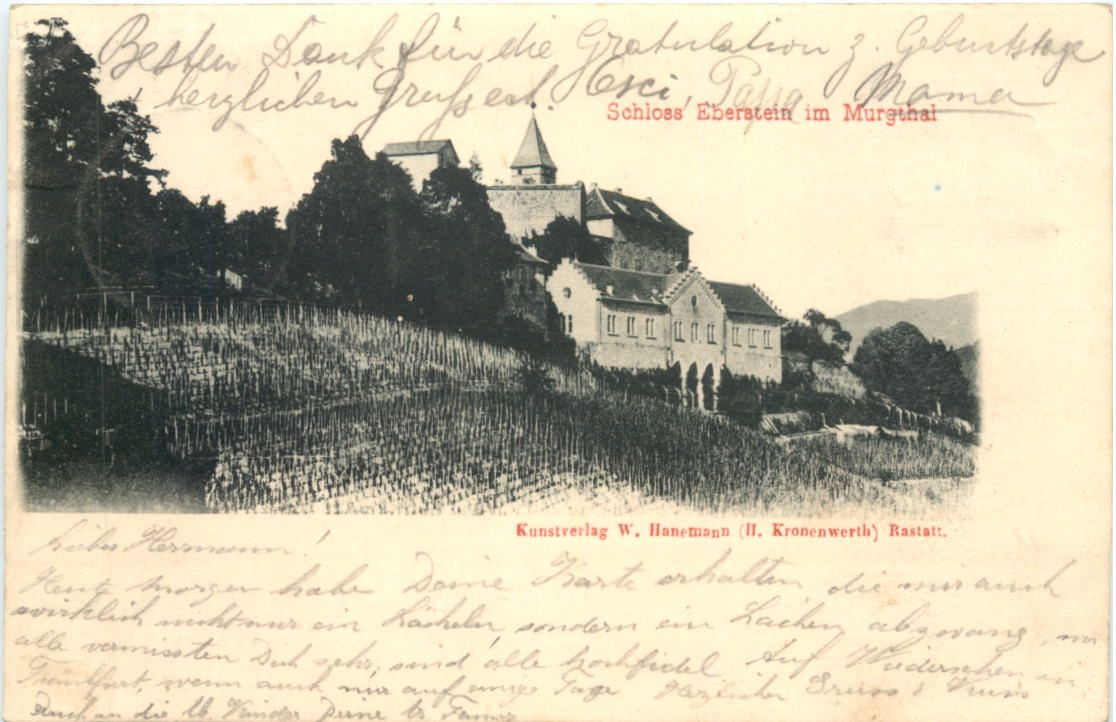 Besten Dank für die Gratulation z. Geburtstage
herzlichen Gruss est. Papa, Mama
Schloss Eberstein im Murgthal
Kunstverlag W. Hanemann (H. Kronenwerth) Rastatt.
Liebes Hermann!
Heute morgen habe Deine Karte erhalten, die mir auch
wirklich nicht nur ein Lächeln, sondern ein Lachen abzwang, wir
alle vermissten Dich sehr, sind alle kochfidel. Auf Wiedersehen in
Frankfurt, wenn auch nur auf einige Tage. Herzlicher Gruss & Kuss
Auch an die lb. Kinder Deine